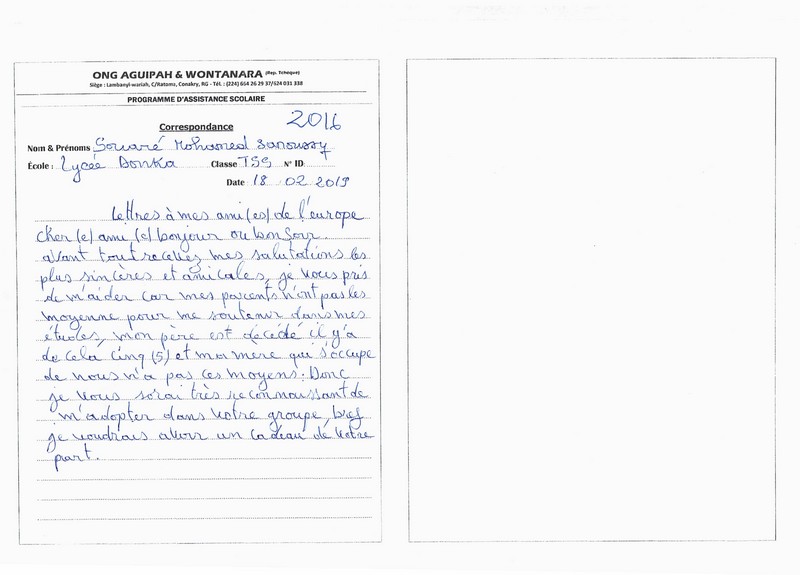 ONG AGUIPAH & WONTANARA (Rep. Tchèque)
Siège : Lambanyi-wariah, C/Ratoma, Conakry, RG - Tél. : (224) 664 26 29 37/624 031 338
PROGRAMME D'ASSISTANCE SCOLAIRE
Correspondance 2016
Nom & Prénoms Souaré Mohamed Sanoussy
École : Lycée Donka Classe TSS N° ID
Date 18 02 2019
Lettres à mes ami(es) de l'europe
Cher(e) ami(e) bonjour ou bonSoir
avant tout recevez mes salutations les
plus sincères et amicales, je vous pris
de m'aider car mes parents n'ont pas les
moyenne pour me soutenir dans mes
études, mon père est décédé il y'a
de cela cinq (5) et ma mere qui s'occupe
de nous n'a pas ces moyens. Donc
je vous serai très reconnaissant de
m'adopter dans votre groupe, bref
je voudrais avoir un cadeau de votre
part.